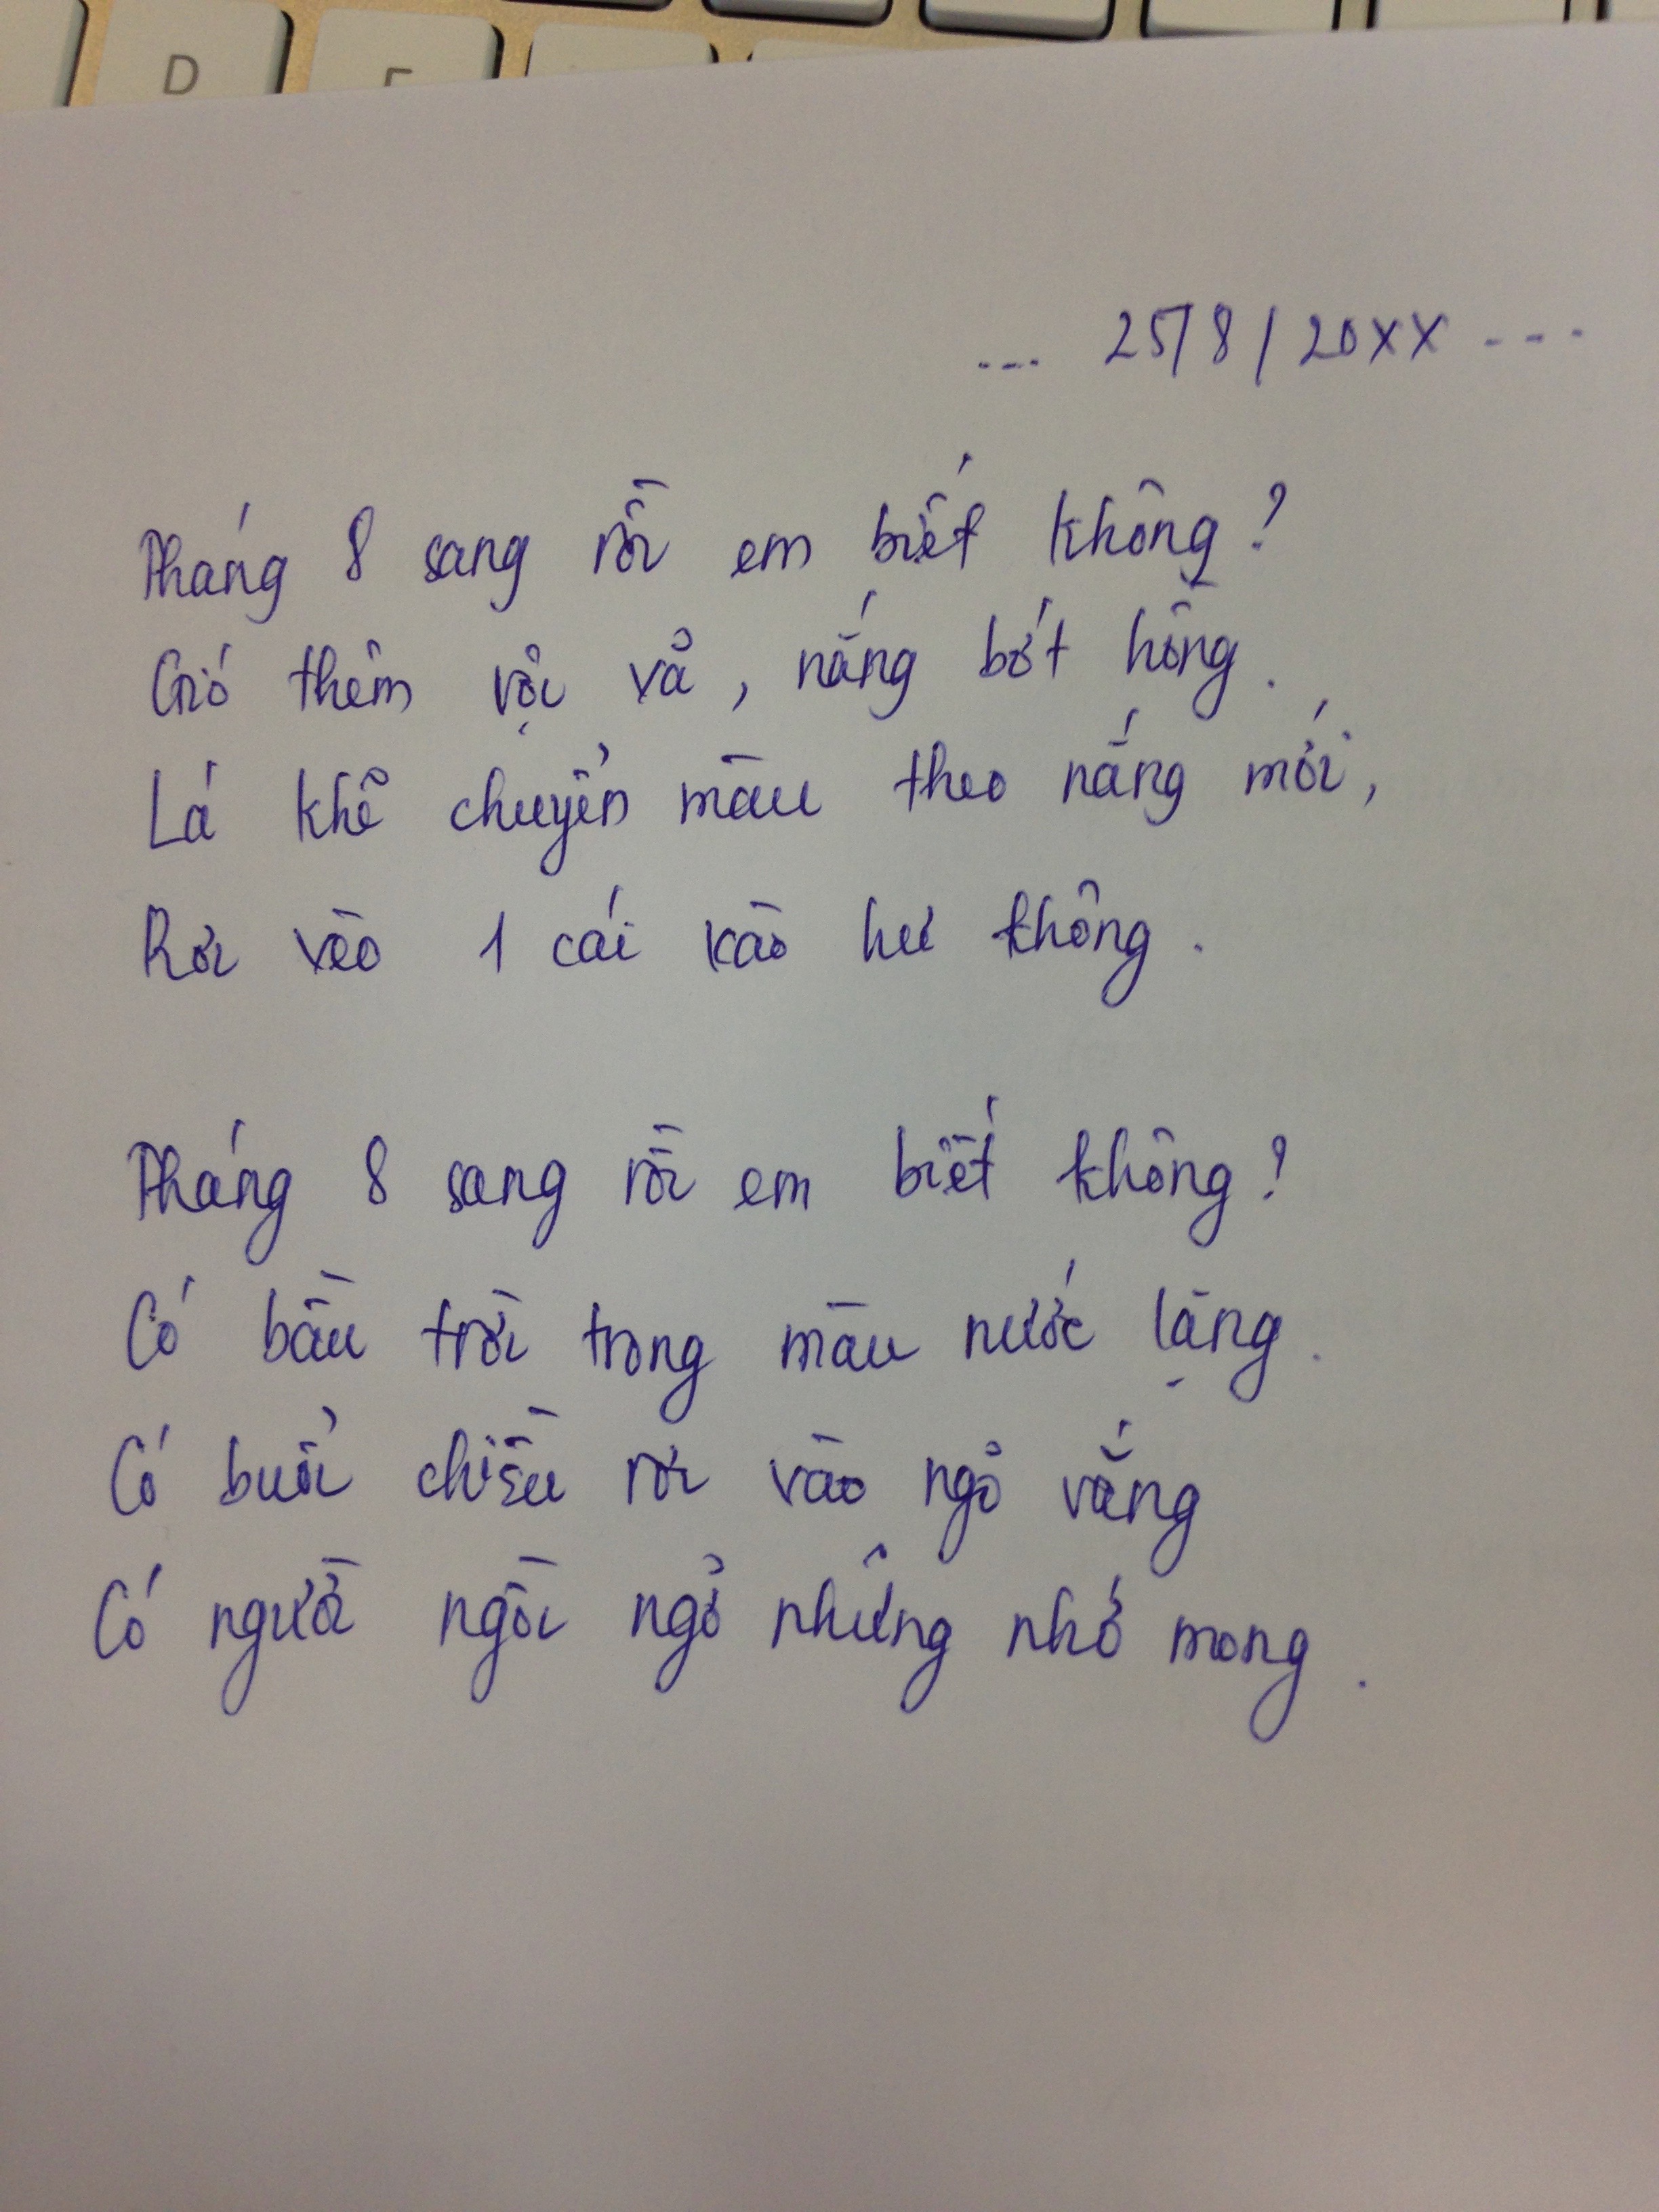 D F
... 25/8/20XX ...
Tháng 8 sang rồi em biết không?
Gió thêm vội vã, nắng bớt hồng.
Lá khẽ chuyển màu theo nắng mới,
Rơi vèo 1 cái vào hư không.
Tháng 8 sang rồi em biết không?
Có bầu trời trong màu nước lặng.
Có buổi chiều rơi vào ngõ vắng
Có người ngồi ngỏ những nhớ mong.